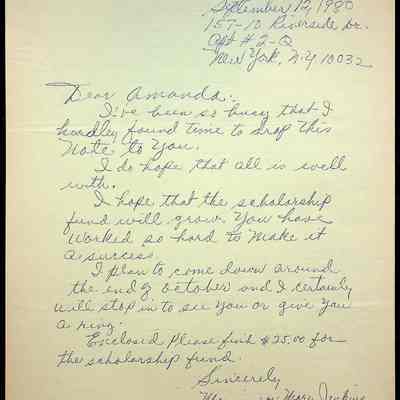 September 12, 1980
157-10 Riverside Dr.
Apt # 2-Q
New York, N.Y 10032
Dear Amanda:
I've been so busy that I
hardley found time to drop this
Note to You.
I do hope that all is well
with.
I hope that the scholarship
fund will grow. You have
worked so hard to make it
a success.
I plan to come down around
the end of October and I certainly
will stop in to see You or give You
a ring.
Enclosed Please find $25.00 for
the scholarship fund.
Sincerely
Mary Jenkins